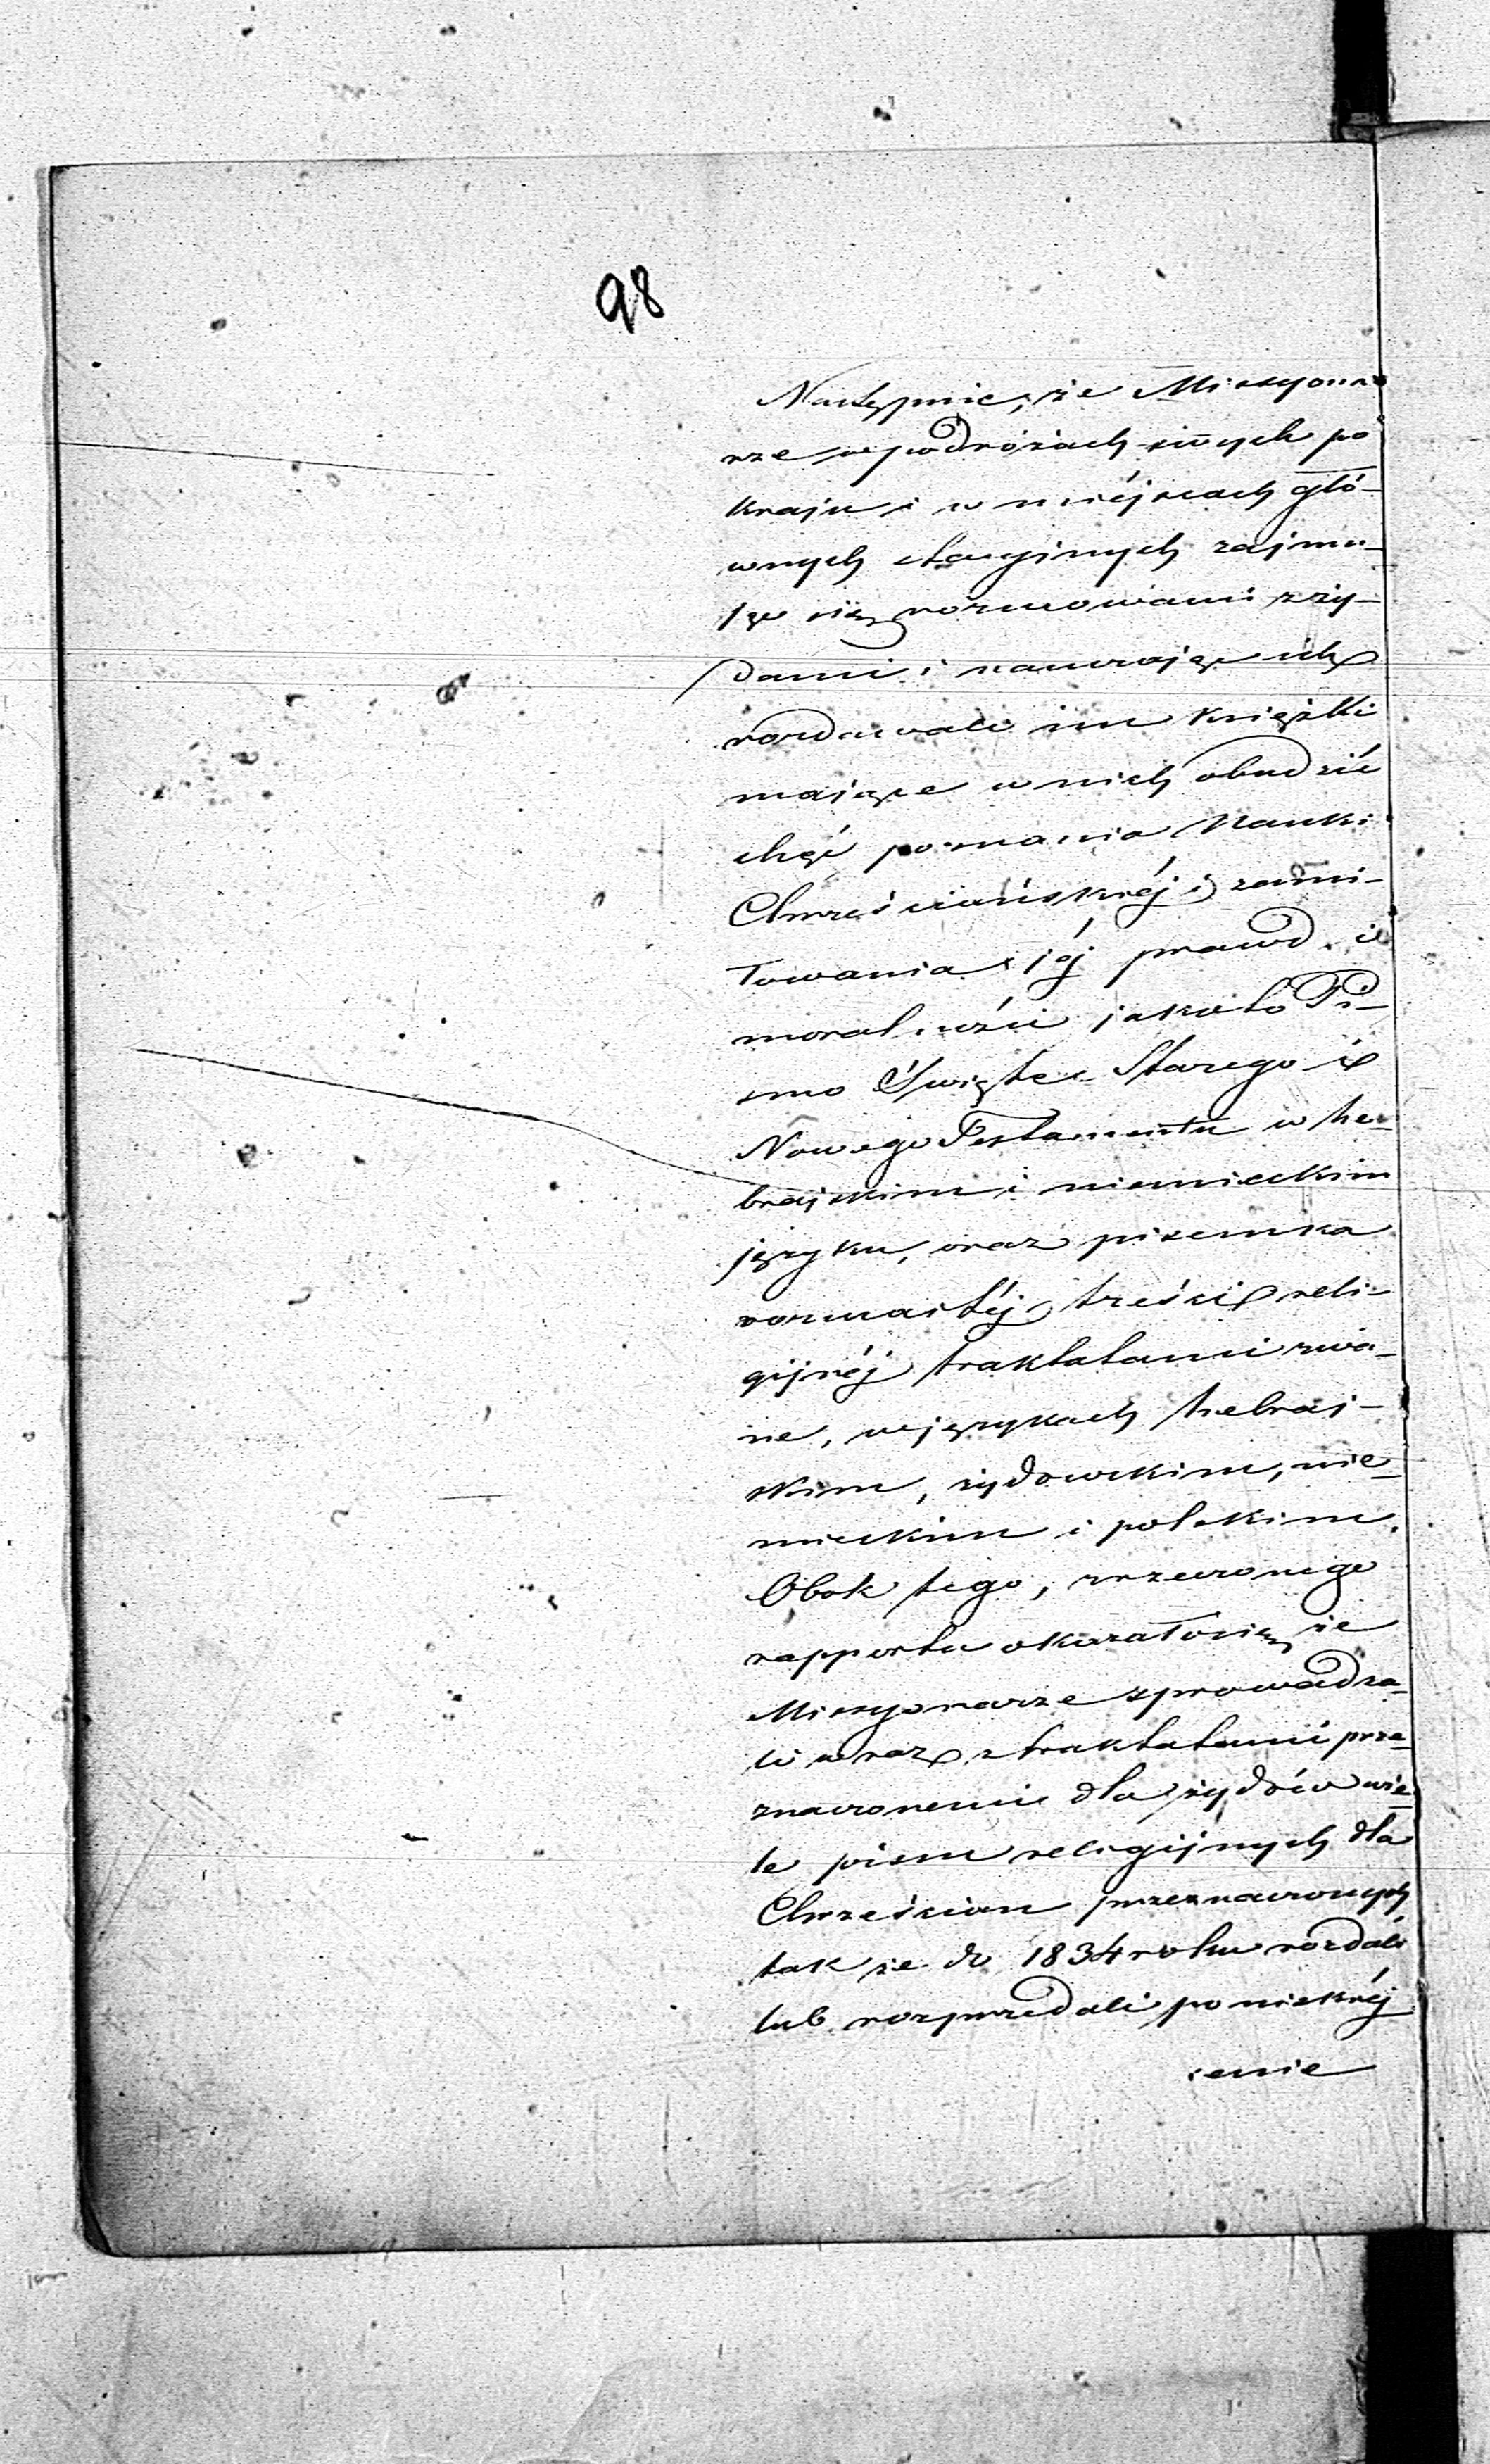 98
Następnie, że Missyona
rze w podróżach swych po
kraju i w miéjscach głó-
wnych stacyjnych zajmu-
jąc się rozmowami z ży-
dami i nauczając ich
rozdawali im książki
mające w nich obudzić
chęć poznania Nauki
Chrześciańskiéj i zami-
łowania jéj prawd i
moralności jakoto Pi-
smo Święte Starego i
Nowego Testamentu w he-
brajskim i niemieckim
języku, oraz pisemka
rozmaitéj treści reli-
gijnéj traktatami zwa-
ne, w językach hebraj-
skim, żydowskim, nie-
mieckim i polskim.
Obok tego, rzeczonego
rapportu okazało się że
Missyonarze sprowadza-
li wraz z traktatami prze-
znaczonemi dla żydów wie-
le pism religijnych dla
Chrześcian przeznaczonych
tak że do 1834 roku rozdali
lub rozprzedali po niskiéj
cenie